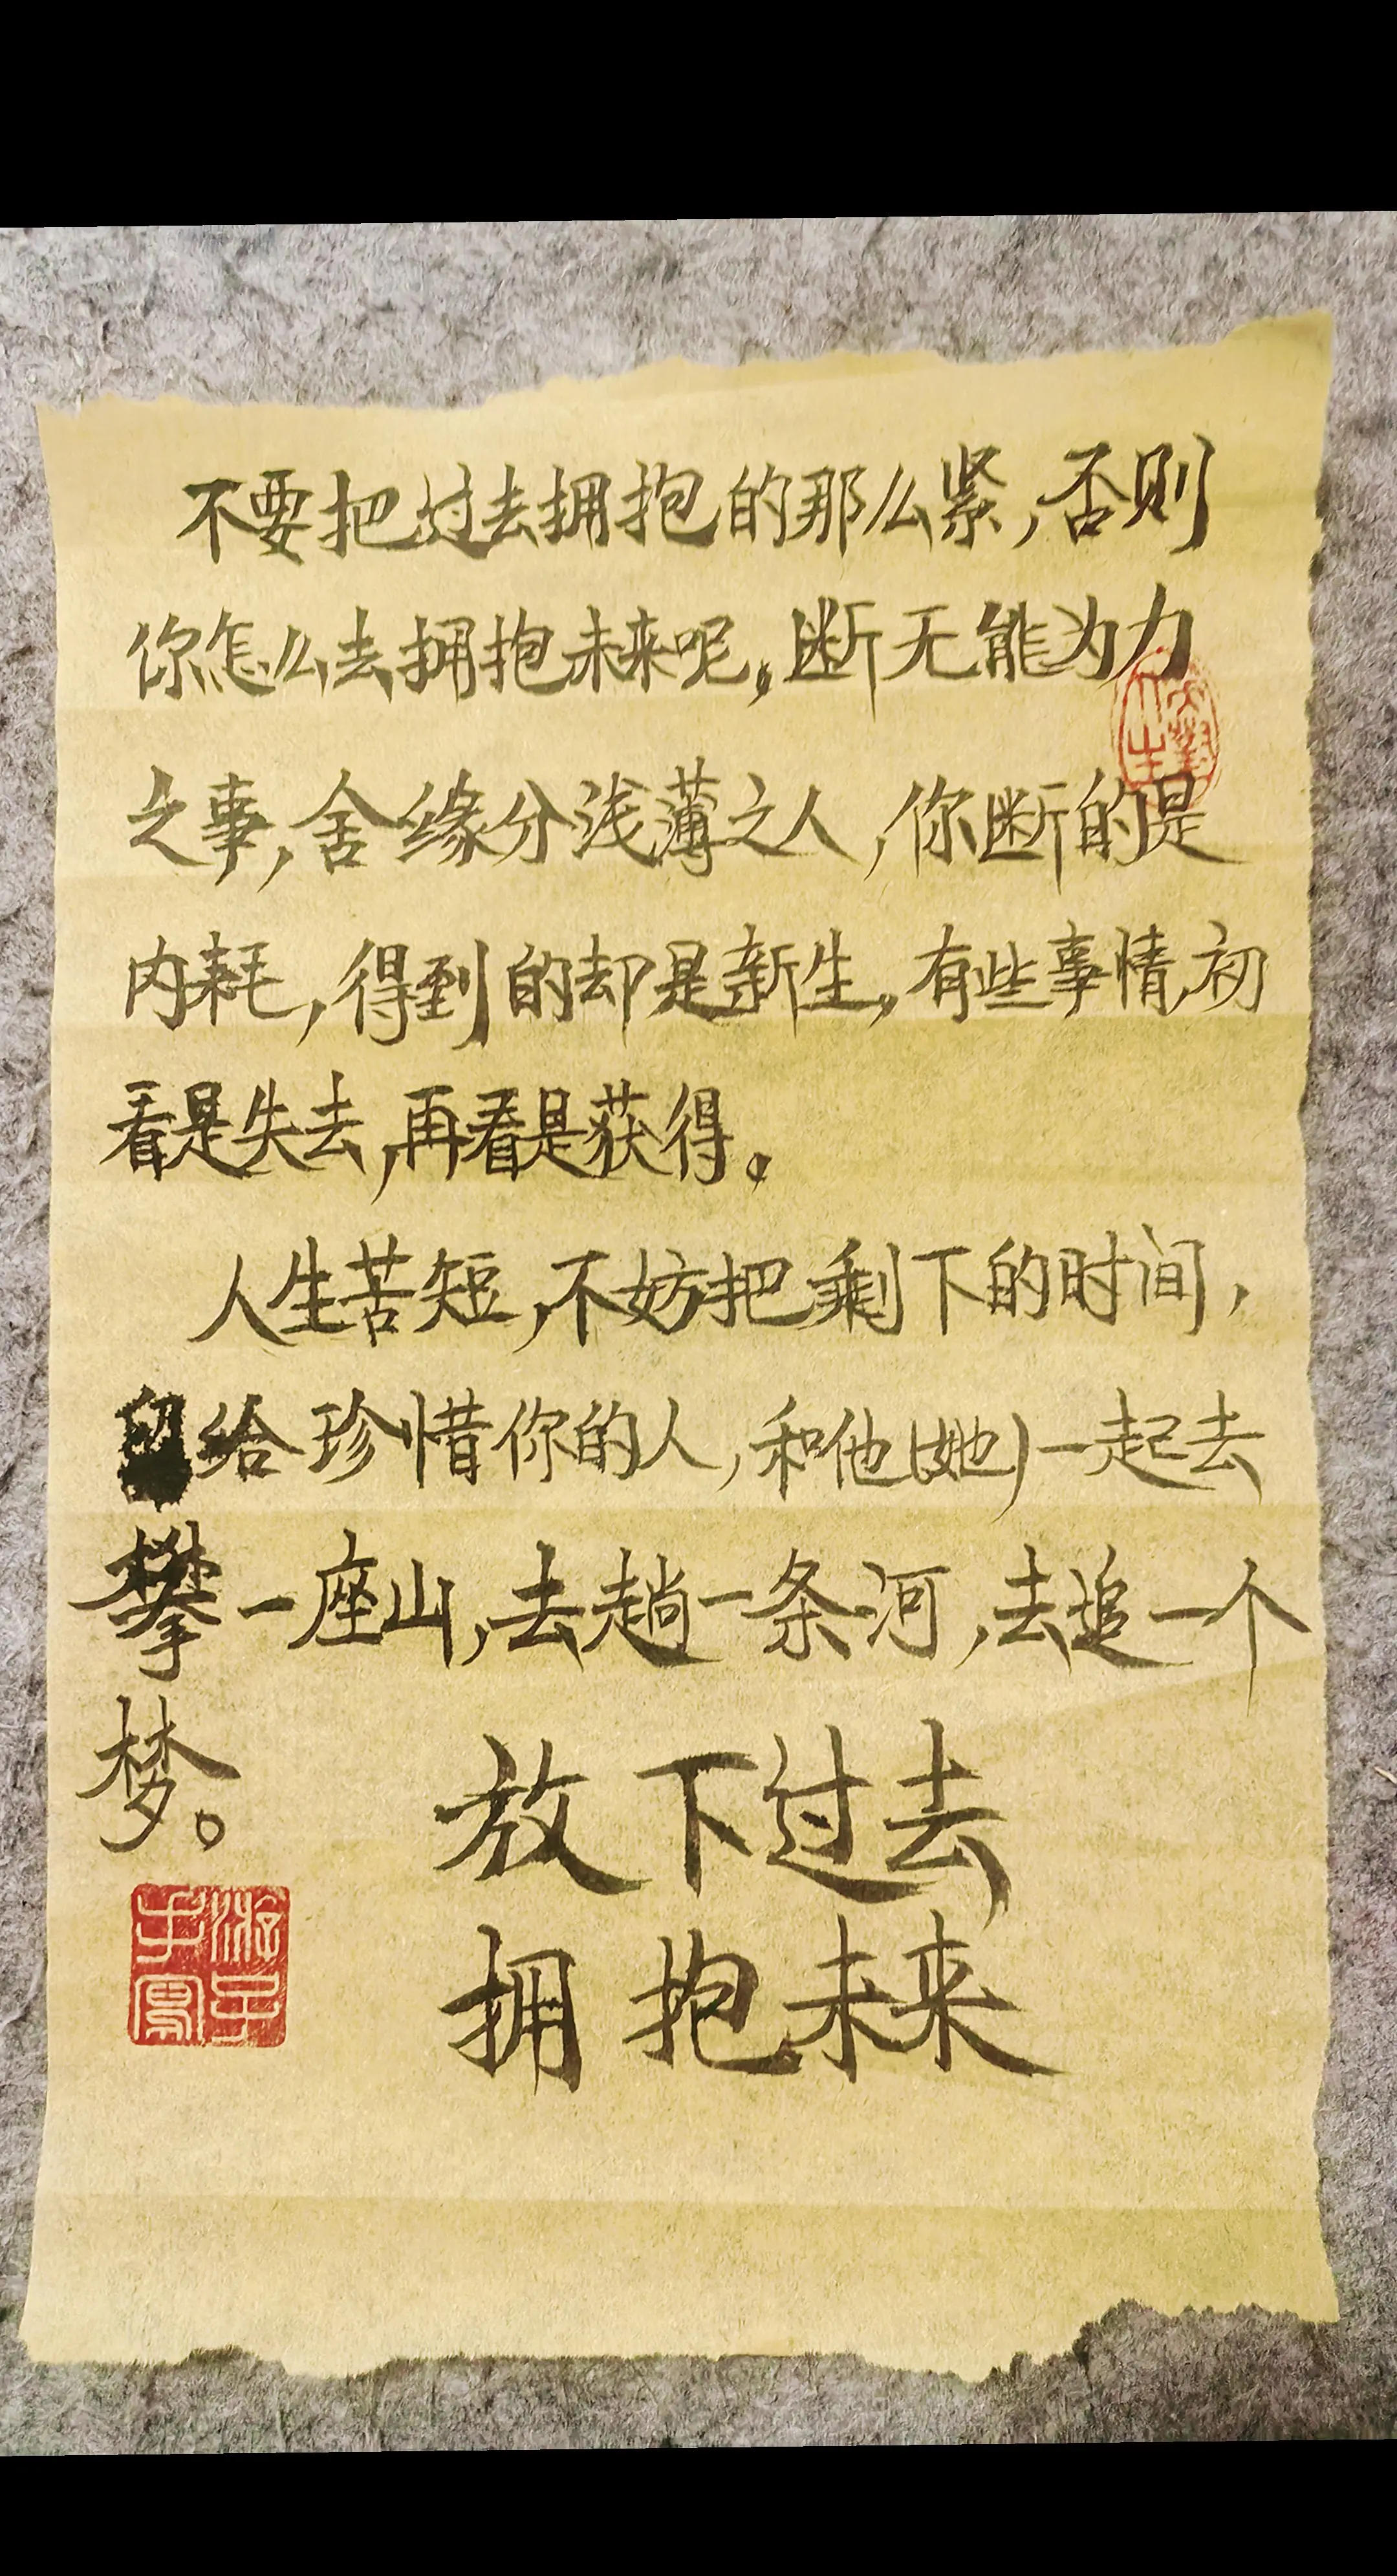 不要把过去拥抱的那么紧，否则
你怎么去拥抱未来呢。断无能为力
之事，舍缘分浅薄之人，你断的是
内耗，得到的却是新生。有些事情，初
看是失去，再看是获得。
人生苦短，不妨把剩下的时间，
留给珍惜你的人，和他(她)一起去
攀一座山，去趟一条河，去追一个
梦。
放下过去
拥抱未来
游子手写